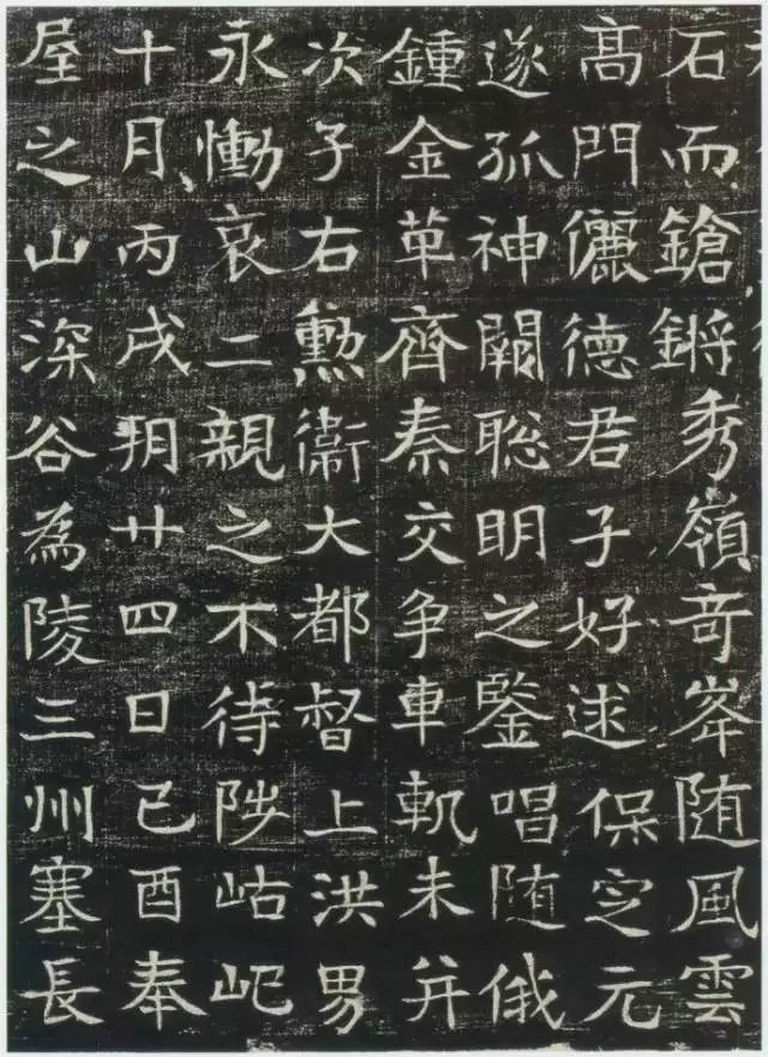 石而鎗鏘秀嶺奇峯随風雲
高門儷德君子好逑保定元
遂孤神闕聡明之鑒唱随俄
鍾金草齊秦交争車軌未并
次子右勲衞大都督上洪男
永慟哀二親之不待陟岵屺
十月丙戌玥廿四日己酉奉
屋之山深谷為陵三州塞長